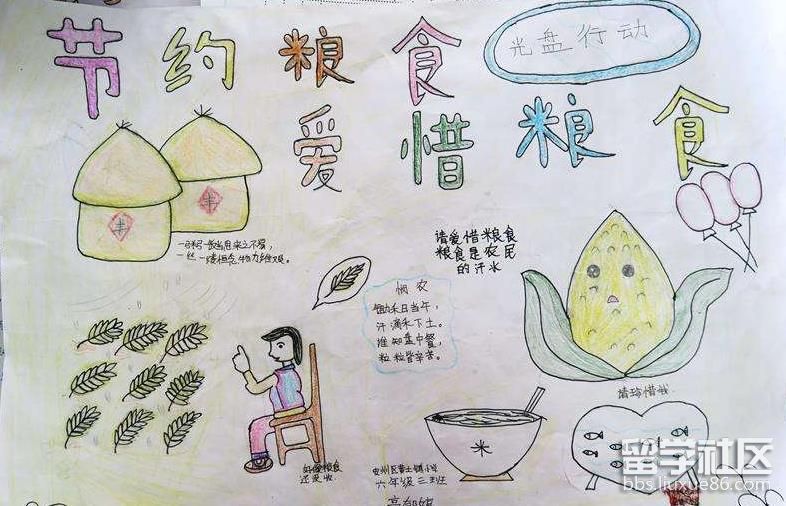 节约粮食
光盘行动
爱惜粮食
丰
丰
一粥一饭当思来之不易，
一丝一缕恒念物力维艰。
请爱惜粮食
粮食是农民
的汗水
悯农
锄禾日当午，
汗滴禾下土。
谁知盘中餐，
粒粒皆辛苦。
请珍惜我
好像粮食
还没收
米
六年级三班
留学社区
bbs.liuxue86.com